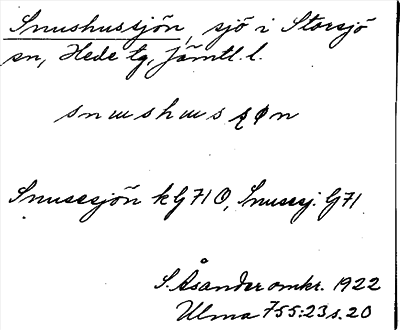 Snushussjön, sjö i Storsjö
sn, Hede tg, Jämtl. l.
Snusesjön k G71 O, Snusesj. G71
S. Åsander omkr. 1922
Ulma 755:23 s. 20